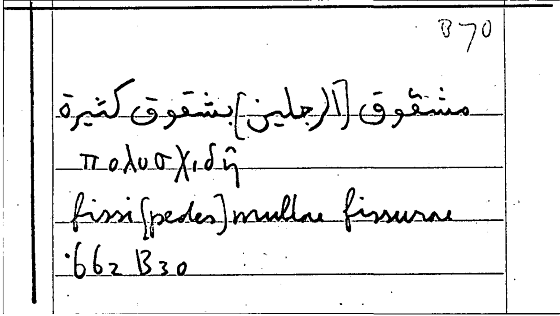 B 70
مشقوق [الرجلين] بشقوق كثيرة
πολυσχιδῆ
fissi[pedes] multae fissurae
662 B30